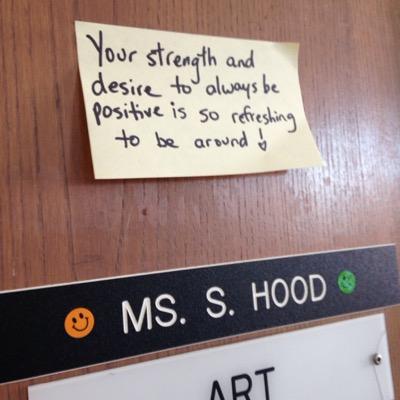 Your strength and
desire to always be
positive is so refreshing
to be around!
MS. S. HOOD
ART